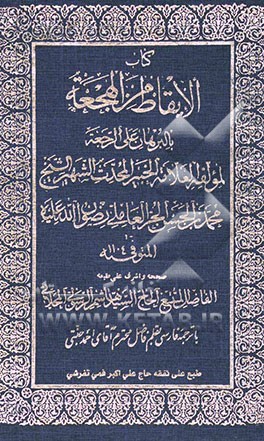 كتاب
الإيقاظ من الهجعة
بالبرهان على الرجعة
لمؤلفه العلامة الخبير المحدث الشهير الشيخ
محمد بن الحسن الحر العاملي رضوان الله عليه
المتوفى ١١٠٤
صححه واشرف على طبعه
الفاضل المتتبع الحاج السيد هاشم الرسولي المحلاتي
با ترجمه فارسی بقلم فاضل محترم آقای احمد جنتی
طبع على نفقه حاج على اكبر قمى تفرشى